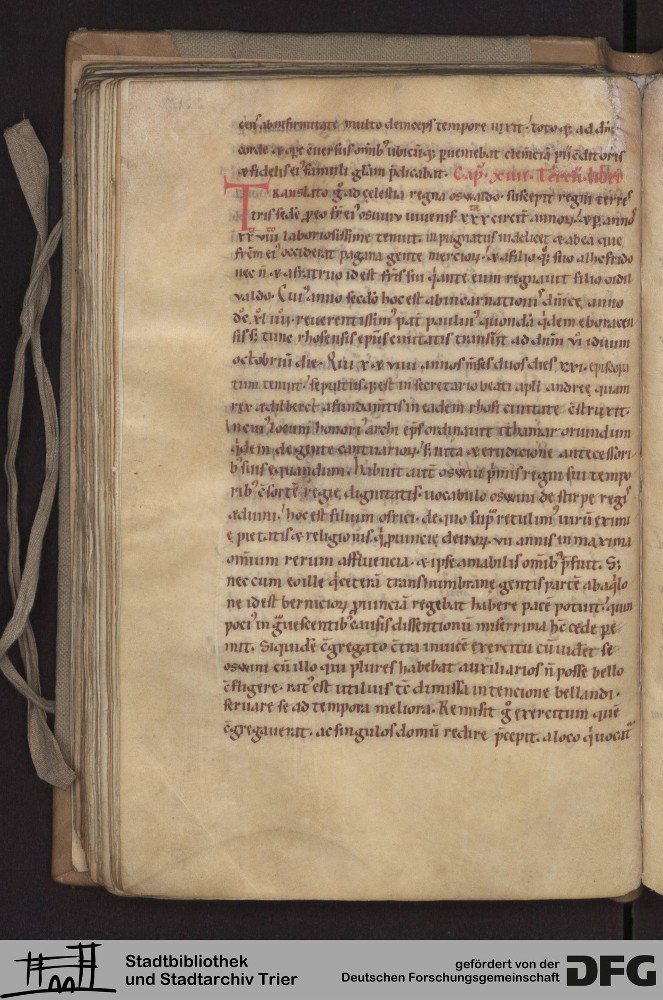 cens ab infirmitate multo deinceps tempore uixit. toto q; ad dn̄m
corde & ope c̄uersus omīb; ubicūq; pueniebat clem̄ciā pii c̄ditoris
& fidelis ei' famuli glām p̄dicabat. Cap̄. xiiii. Tercii libri
Translato g° ad celestia regna oswaldo. suscepit regni terres
tris sedē p eo fr̄ ei' osuuiu iuuenis xxx circit annor. & p annos
xx viii laboriosissime tenuit. inpugnatus uidelicet & ab ea que
frēm ei' occiderat pagana gente mercior. & a filio q; suo alhefrido
nec n̄ & a fratruo id est fr̄is sui q̇ ante eum regnauit filio oidil
valdo. Cui' anno secdō hoc est ab incarnationis dn̄ice anno
dc xl iiii. reuerentissim' pat̄ paulin' quondā q̇dem eboracen
sis s; tunc rhofensis ep̄us ciuitatis transiit ad dn̄m vi iduum
octobriū die. Xui x & viiii annos m̄ses duos dies xxi. episcopa
tum tenuit. sepultus q; est in secretario beati apl̄i andree quam
rex ædilberct a fundam̄tis in eadem rhofi ciuitate c̄struxit.
In cui' locum honori' archi ep̄s ordinauit ithamar oriundum
q̇dem de gente cantuarior. s; uita & erudicione antecessori
b; suis equandum. Habuit aut̄ oswiu p̄mis regni sui tempo
rib; c̄sortē regie dignitatis uocabulo oswini de stirpe regis
aduini. hoc est filium osrici. de quo sup̄ retulim' uirū eximi
e pietatis & religionis. q̇ puincie deiror. vii annis in maxima
omnium rerum affluencia. & ipse amabilis omīb; p̄fuit. S;
nec cum eo ille q̇ ceterā transhumbrane gentis partē ab aq̇lo
ne id est bernicior puinciā regebat habere pacē potuit. quin
poci' ingrauescentib; causis dissentionū miserrima hc̄ cede pe
mit. Siquidē c̄gregato c̄tra inuicē exercitu cū uidet se
oswini cū illo qui plures habebat auxiliarios n̄ posse bello
c̄fligere. rat' est utilius tc̄ dimissa intencione bellandi.
seruare se ad tempora meliora. Remisit g° exercitum quē
c̄gregauerat. ac singulos domū redire p̄cepit. a loco q̇ uocat'
Stadtbibliothek
und Stadtarchiv Trier
gefördert von der
Deutschen Forschungsgemeinschaft
DFG